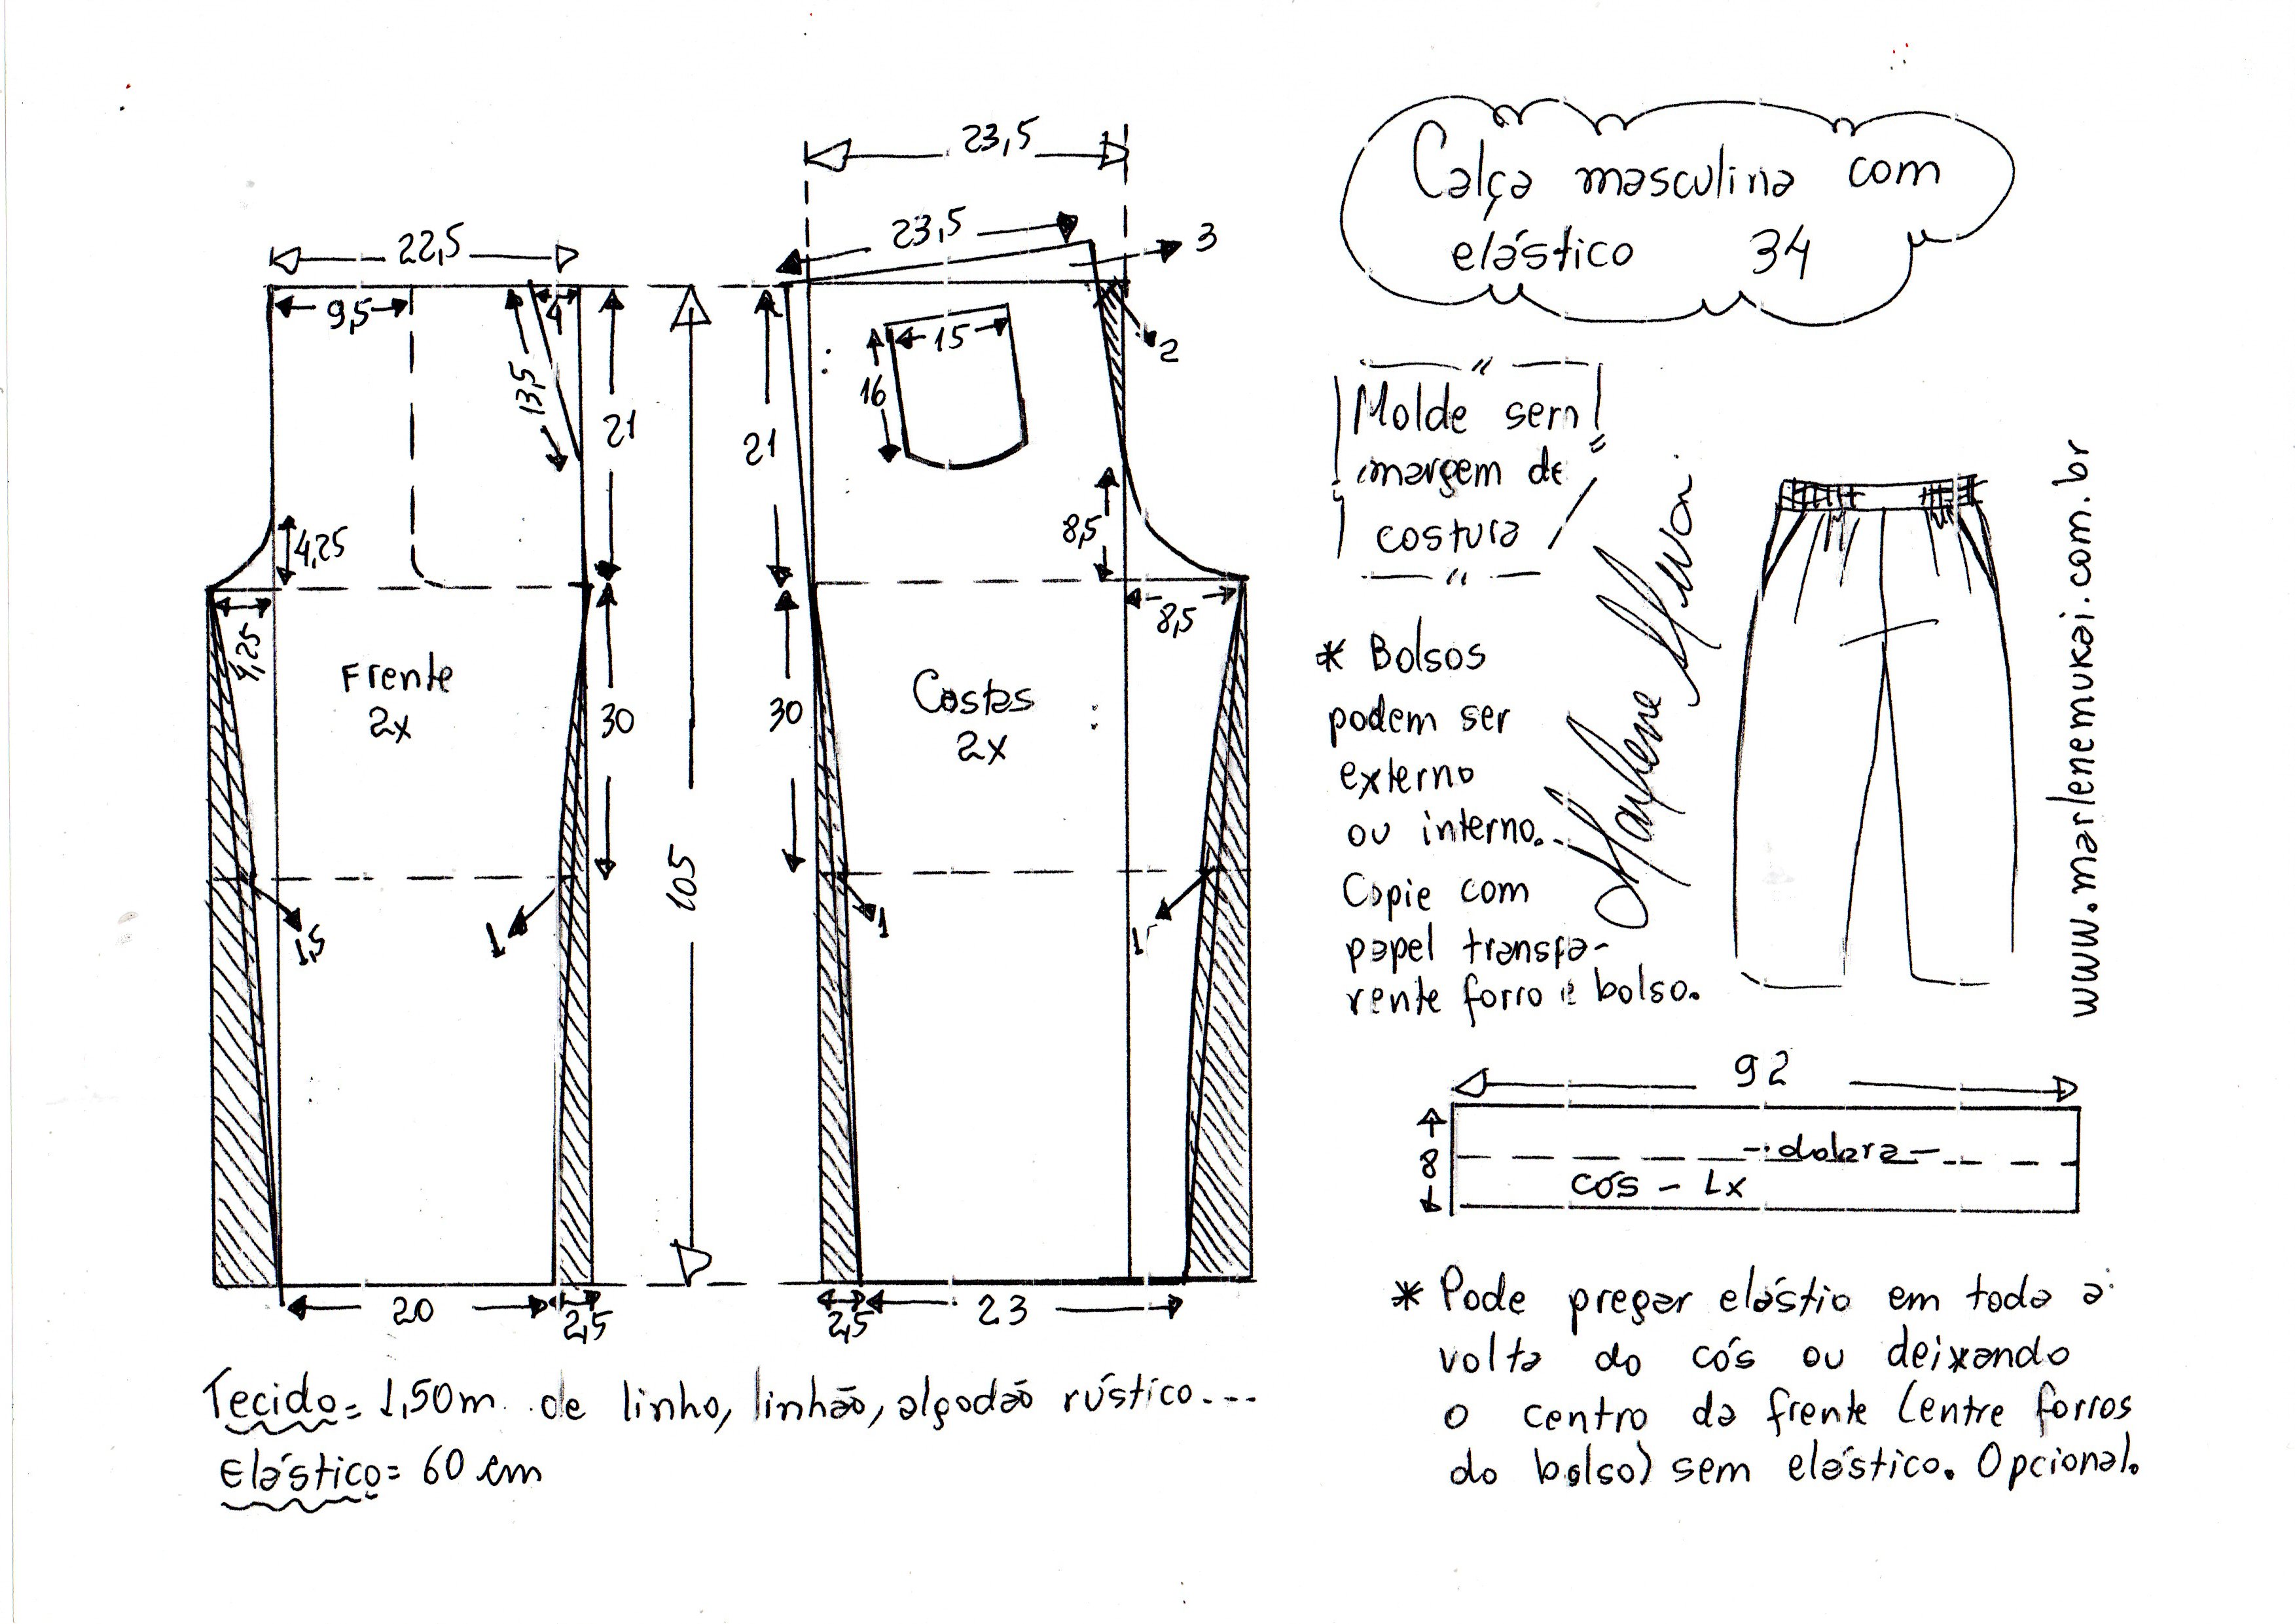 Calça masculina com
elástico 34
23,5
23,5
3
22,5
9,5
4
13,5
21
21
15
16
2
4,25
8,5
4,25
8,5
Frente
2x
30
30
Costas
2x
105
1,5
1
1
1
20
2,5
2,5
23
Tecido = 1,50m de linho, linhão, algodão rústico...
Elástico = 60 cm
Molde sem
margem de
costura
* Bolsos
podem ser
externo
ou interno..
Copie com
papel transpa-
rente forro e bolso.
Marlene Mukai
www.marlenemukai.com.br
92
8
- dobra -
cós - 1x
* Pode pregar elástio em toda a
volta do cós ou deixando
o centro da frente (entre forros
do bolso) sem elástico. Opcional.